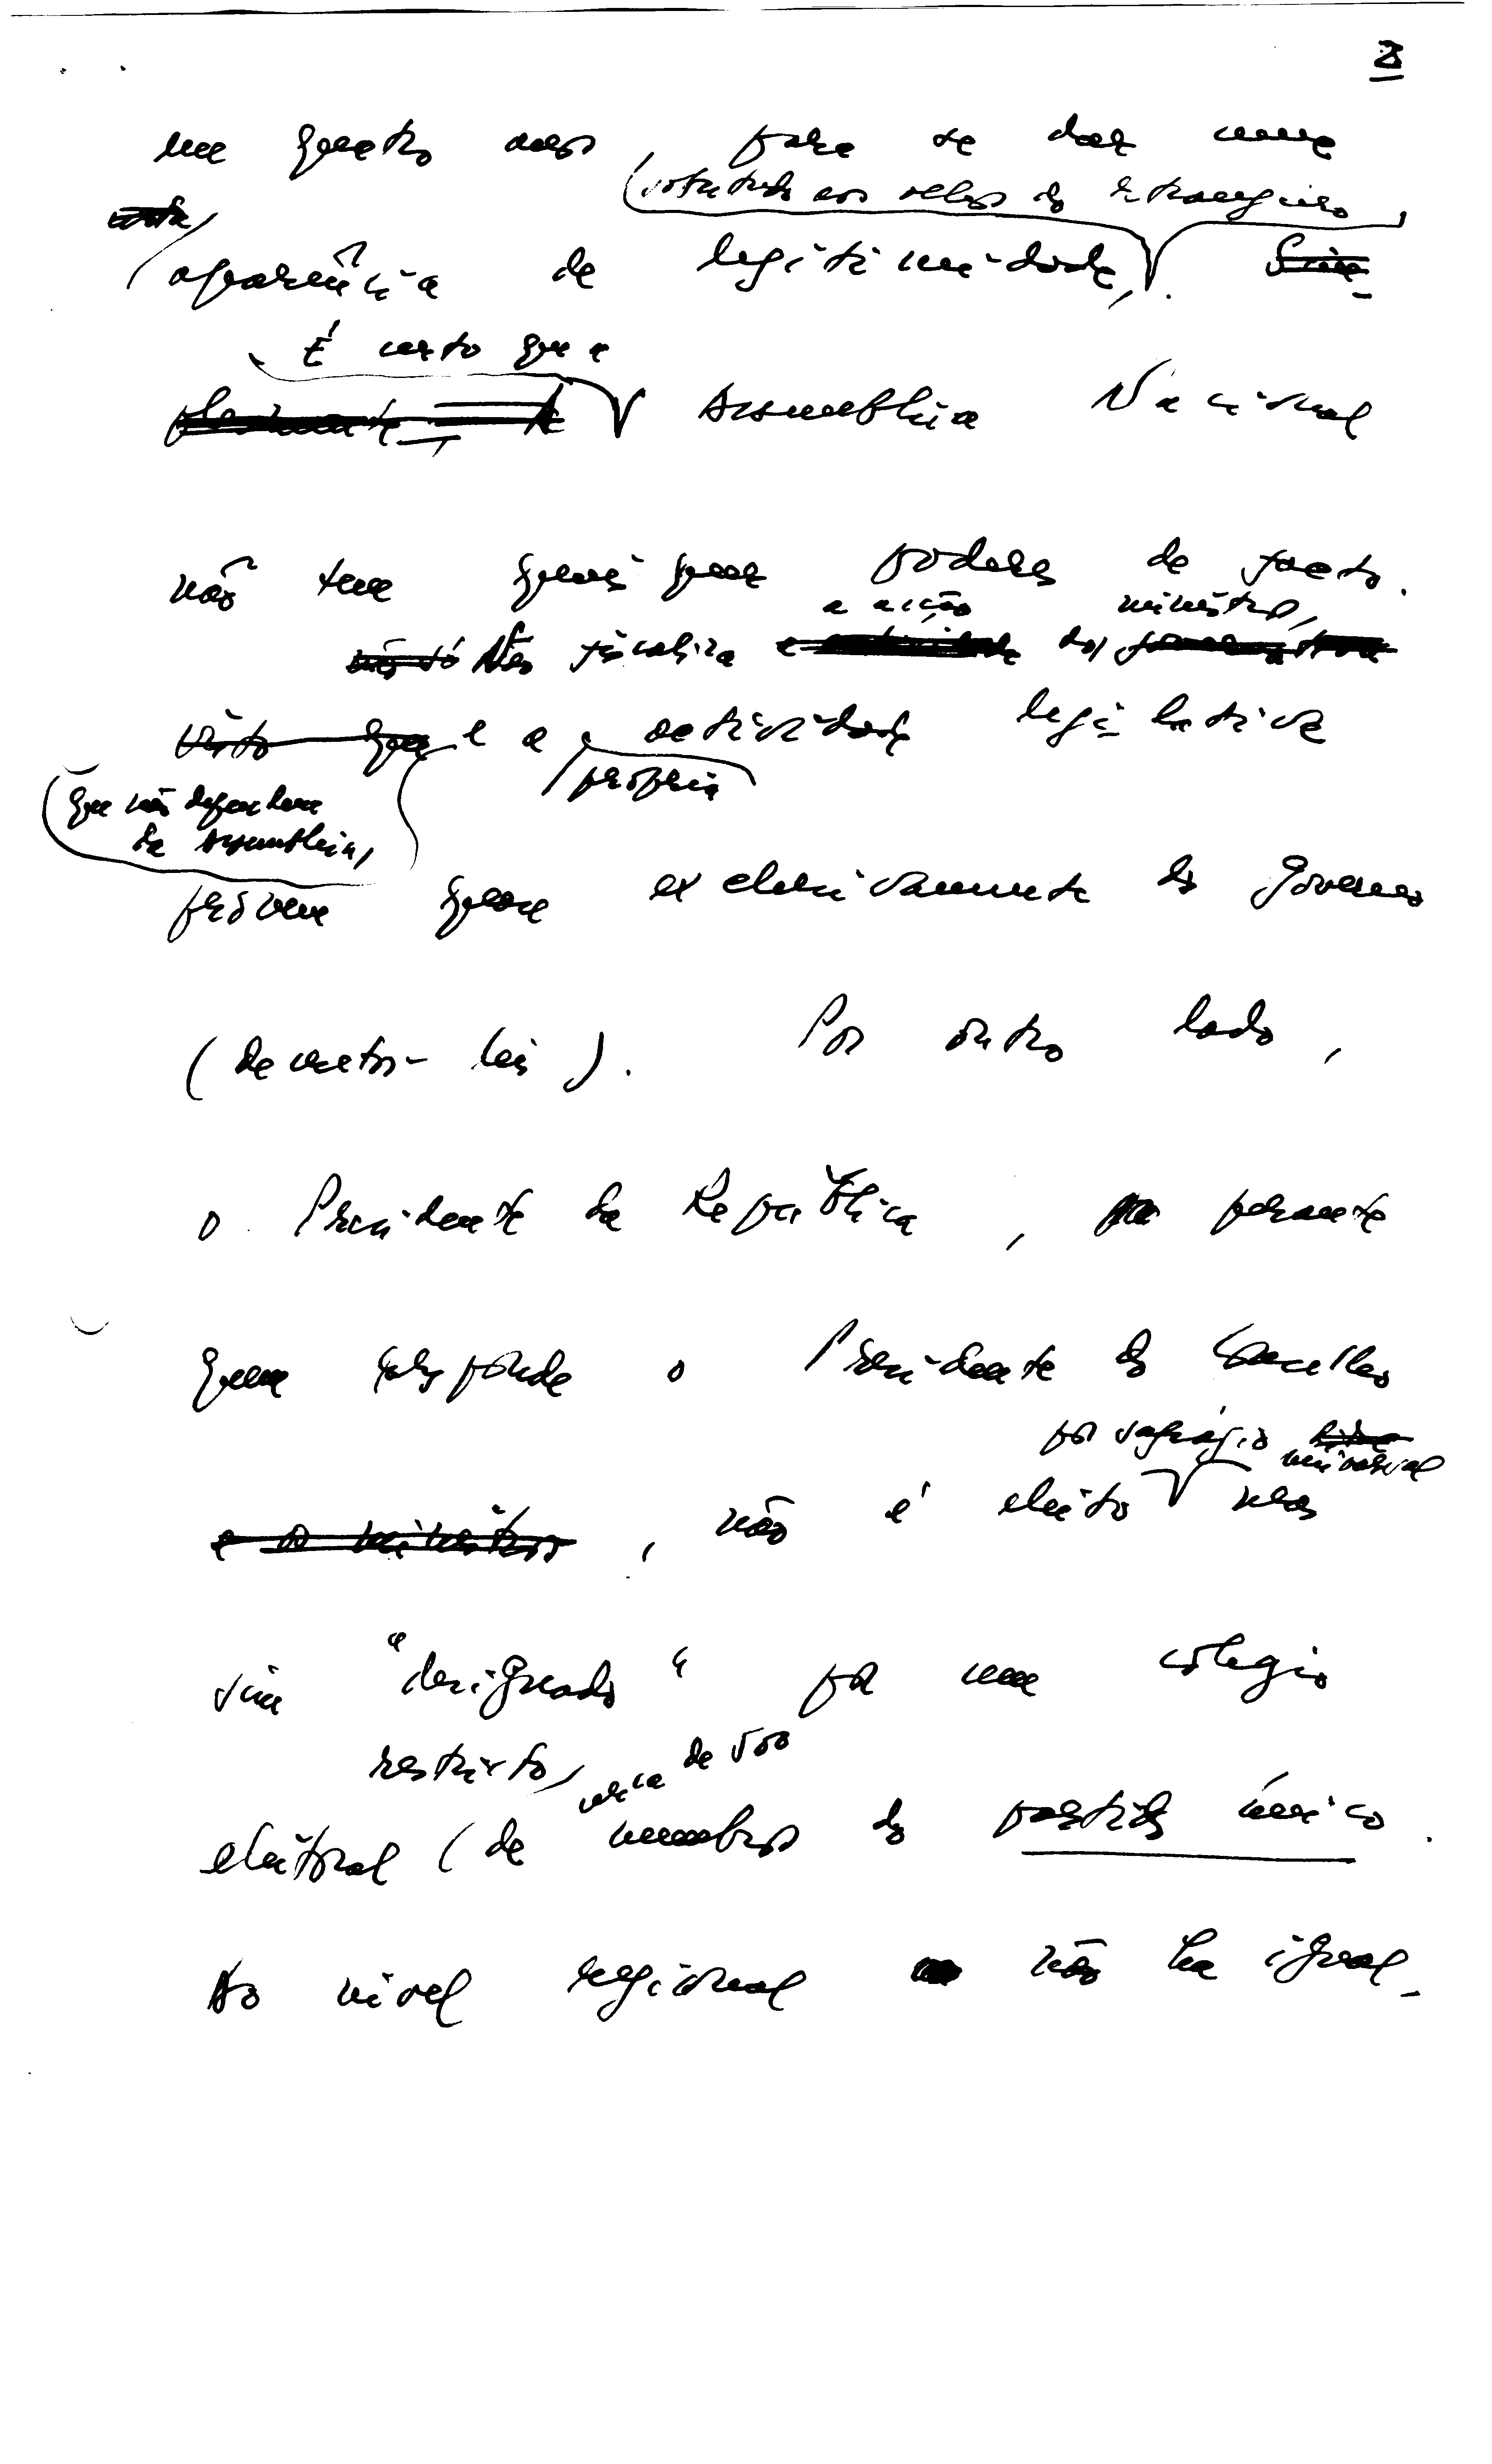 8
em quatro anos, para se dar uma
sobretudo aos olhos do estrangeiro,
aparência de legitimidade,
É certo que a
Assembleia Nacional
não tem quaisquer poderes de facto.
a acção ministros,
Não fiscaliza dos
visto que e a actividade legislativa
própria
que não dependem
da Assembleia,
provem quase exclusivamente do Governo
(decretos-leis). Por outro lado,
o Presidente da República, perante
quem responde o Presidente do Conselho
por sufrágio
universal
e os ministros, não é eleito mas
sim "designado" por um colégio
restrito, cerca de 500
eleitoral (de membros do partido único.
Ao nivel regional não ha igual-